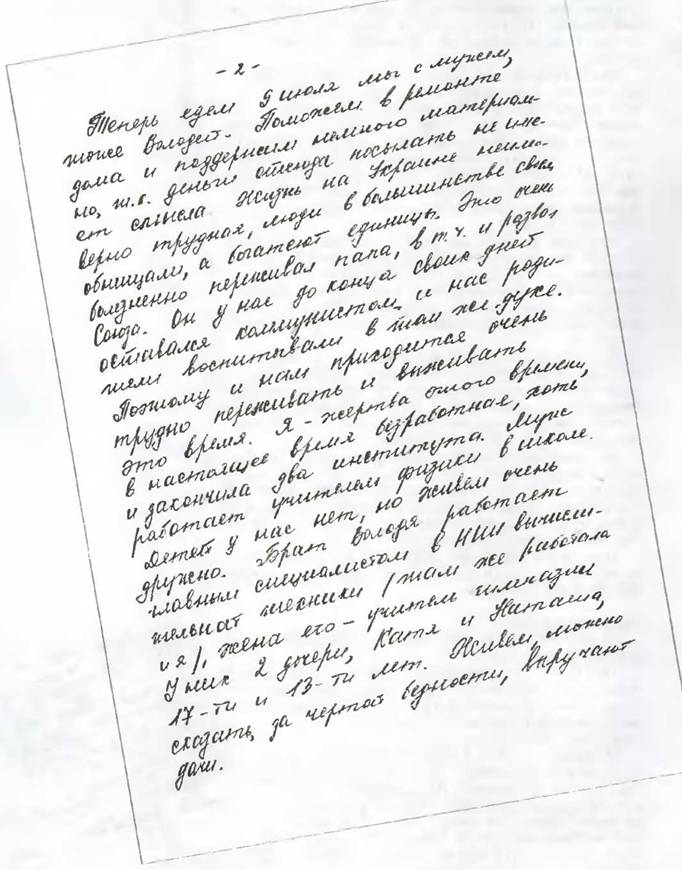 - 2 -
Теперь едем 9 июля мы с мужем,
тоже Володей. Поможем в ремонте
дома и поддержим немного материаль-
но, т.к. деньги отсюда посылать не име-
ет смысла. Жизнь на Украине неимо-
верно трудная, люди в большинстве своем
обнищали, а богатеют единицы. Это очень
болезненно переживал папа, в т.ч. и развал
Союза. Он у нас до конца своих дней
оставался коммунистом и нас роди-
тели воспитывали в том же духе.
Поэтому и нам приходится очень
трудно переживать и выживать
это время. Я - жертва этого времени,
в настоящее время безработная, хоть
и закончила два института. Муж
работает учителем физики в школе.
Детей у нас нет, но живем очень
дружно. Брат Володя работает
главным специалистом в НИИ вычисли-
тельной техники /там же работала
и я/, жена его - учитель гимназии
У них 2 дочери, Катя и Наташа,
17-ти и 13-ти лет. Живем, можно
сказать, за чертой бедности, выручают
дачи.